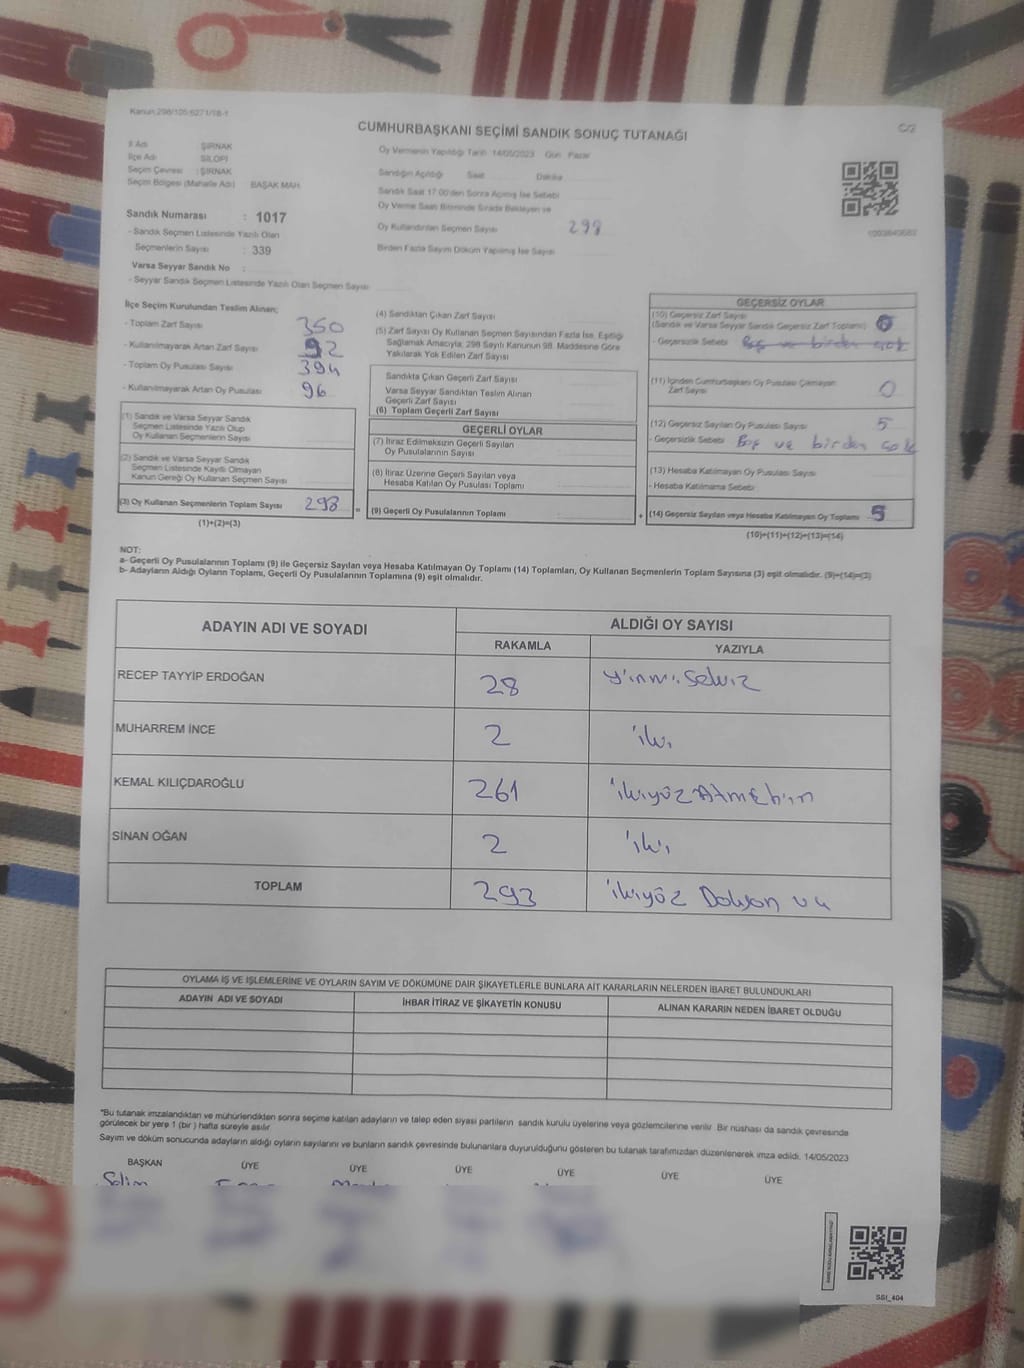 Kanun:298/105-6271/18-1
C/2
CUMHURBAŞKANI SEÇİMİ SANDIK SONUÇ TUTANAĞI
İl Adı ŞIRNAK
İlçe Adı SİLOPİ
Seçim Çevresi : ŞIRNAK
Seçim Bölgesi (Mahalle Adı) BAŞAK MAH.
Sandık Numarası : 1017
- Sandık Seçmen Listesinde Yazılı Olan
Seçmenlerin Sayısı : 339
Varsa Seyyar Sandık No :
- Seyyar Sandık Seçmen Listesinde Yazılı Olan Seçmen Sayısı
Oy Vermenin Yapıldığı Tarih 14/05/2023 Gün Pazar
Sandığın Açıldığı Saat Dakika
Sandık Saat 17.00'den Sonra Açılmış İse Sebebi
Oy Verme Saati Bitiminde Sırada Bekleyen ve
Oy Kullandırılan Seçmen Sayısı 298
Birden Fazla Sayım Döküm Yapılmış İse Sayısı
İlçe Seçim Kurulundan Teslim Alınan;
- Toplam Zarf Sayısı 350
- Kullanılmayarak Artan Zarf Sayısı 92
- Toplam Oy Pusulası Sayısı 394
- Kullanılmayarak Artan Oy Pusulası 96
(1) Sandık ve Varsa Seyyar Sandık
Seçmen Listesinde Yazılı Olup
Oy Kullanan Seçmenlerin Sayısı
(2) Sandık ve Varsa Seyyar Sandık
Seçmen Listesinde Kayıtlı Olmayan
Kanun Gereği Oy Kullanan Seçmen Sayısı
(3) Oy Kullanan Seçmenlerin Toplam Sayısı 298 =
(1)+(2)=(3)
(4) Sandıktan Çıkan Zarf Sayısı
(5) Zarf Sayısı Oy Kullanan Seçmen Sayısından Fazla İse, Eşitliği
Sağlamak Amacıyla; 298 Sayılı Kanunun 98. Maddesine Göre
Yakılarak Yok Edilen Zarf Sayısı
Sandıkta Çıkan Geçerli Zarf Sayısı
Varsa Seyyar Sandıktan Teslim Alınan
Geçerli Zarf Sayısı
(6) Toplam Geçerli Zarf Sayısı
GEÇERLİ OYLAR
(7) İtiraz Edilmeksizin Geçerli Sayılan
Oy Pusulalarının Sayısı
(8) İtiraz Üzerine Geçerli Sayılan veya
Hesaba Katılan Oy Pusulası Toplamı
(9) Geçerli Oy Pusulalarının Toplamı +
GEÇERSİZ OYLAR
(10) Geçersiz Zarf Sayısı
(Sandık ve Varsa Seyyar Sandık Geçersiz Zarf Toplamı)
- Geçersizlik Sebebi Boş ve birden çok
(11) İçinden Cumhurbaşkanı Oy Pusulası Çıkmayan
Zarf Sayısı 0
(12) Geçersiz Sayılan Oy Pusulası Sayısı 5
- Geçersizlik Sebebi Boş ve birden çok
(13) Hesaba Katılmayan Oy Pusulası Sayısı
- Hesaba Katılmama Sebebi
(14) Geçersiz Sayılan veya Hesaba Katılmayan Oy Toplamı 5
(10)+(11)+(12)+(13)=(14)
NOT:
a- Geçerli Oy Pusulalarının Toplamı (9) ile Geçersiz Sayılan veya Hesaba Katılmayan Oy Toplamı (14) Toplamları, Oy Kullanan Seçmenlerin Toplam Sayısına (3) eşit olmalıdır. (9)+(14)=(3)
b- Adayların Aldığı Oyların Toplamı, Geçerli Oy Pusulalarının Toplamına (9) eşit olmalıdır.
ADAYIN ADI VE SOYADI ALDIĞI OY SAYISI
RAKAMLA YAZIYLA
RECEP TAYYİP ERDOĞAN 28 yirmi sekiz
MUHARREM İNCE 2 iki
KEMAL KILIÇDAROĞLU 261 ikiyüz Atmışbir
SİNAN OĞAN 2 iki
TOPLAM 293 ikiyüz Doksan
OYLAMA İŞ VE İŞLEMLERİNE VE OYLARIN SAYIM VE DÖKÜMÜNE DAİR ŞİKAYETLERLE BUNLARA AİT KARARLARIN NELERDEN İBARET BULUNDUKLARI
ADAYIN ADI VE SOYADI İHBAR İTİRAZ VE ŞİKAYETİN KONUSU ALINAN KARARIN NEDEN İBARET OLDUĞU
*Bu tutanak imzalandıktan ve mühürlendikten sonra seçime katılan adayların ve talep eden siyasi partilerin sandık kurulu üyelerine veya gözlemcilerine verilir. Bir nüshası da sandık çevresinde
görülecek bir yere 1 (bir ) hafta süreyle asılır.
Sayım ve döküm sonucunda adayların aldığı oyların sayılarını ve bunların sandık çevresinde bulunanlara duyurulduğunu gösteren bu tutanak tarafımızdan düzenlenerek imza edildi. 14/05/2023
BAŞKAN ÜYE ÜYE ÜYE ÜYE ÜYE ÜYE
Selim
SSI_404